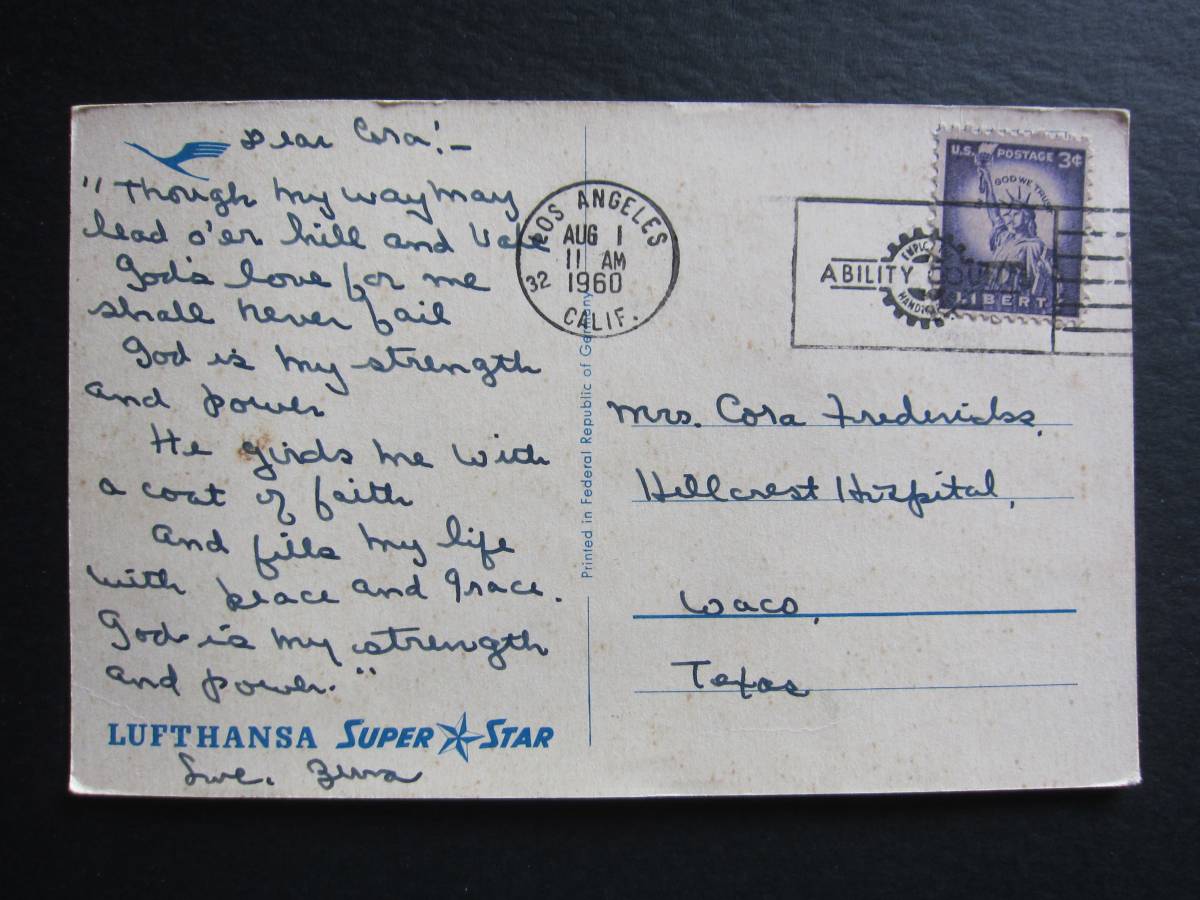 Dear Cora!-
"Though my way may
lead o'er hill and Vale
God's love for me
shall never fail
God is my strength
and power
He girds me with
a coat of faith
And fills my life
with peace and Grace.
God is my strength
and power."
LUFTHANSA SUPER STAR
Luve.
Printed in Federal Republic of Germany
LOS ANGELES
AUG 1
11 AM
32 1960
CALIF.
ABILITY COUNTS
U.S. POSTAGE 3¢
IN GOD WE TRUST
LIBERTY
Mrs. Cora Fredericks,
Hillcrest Hospital,
Waco,
Texas